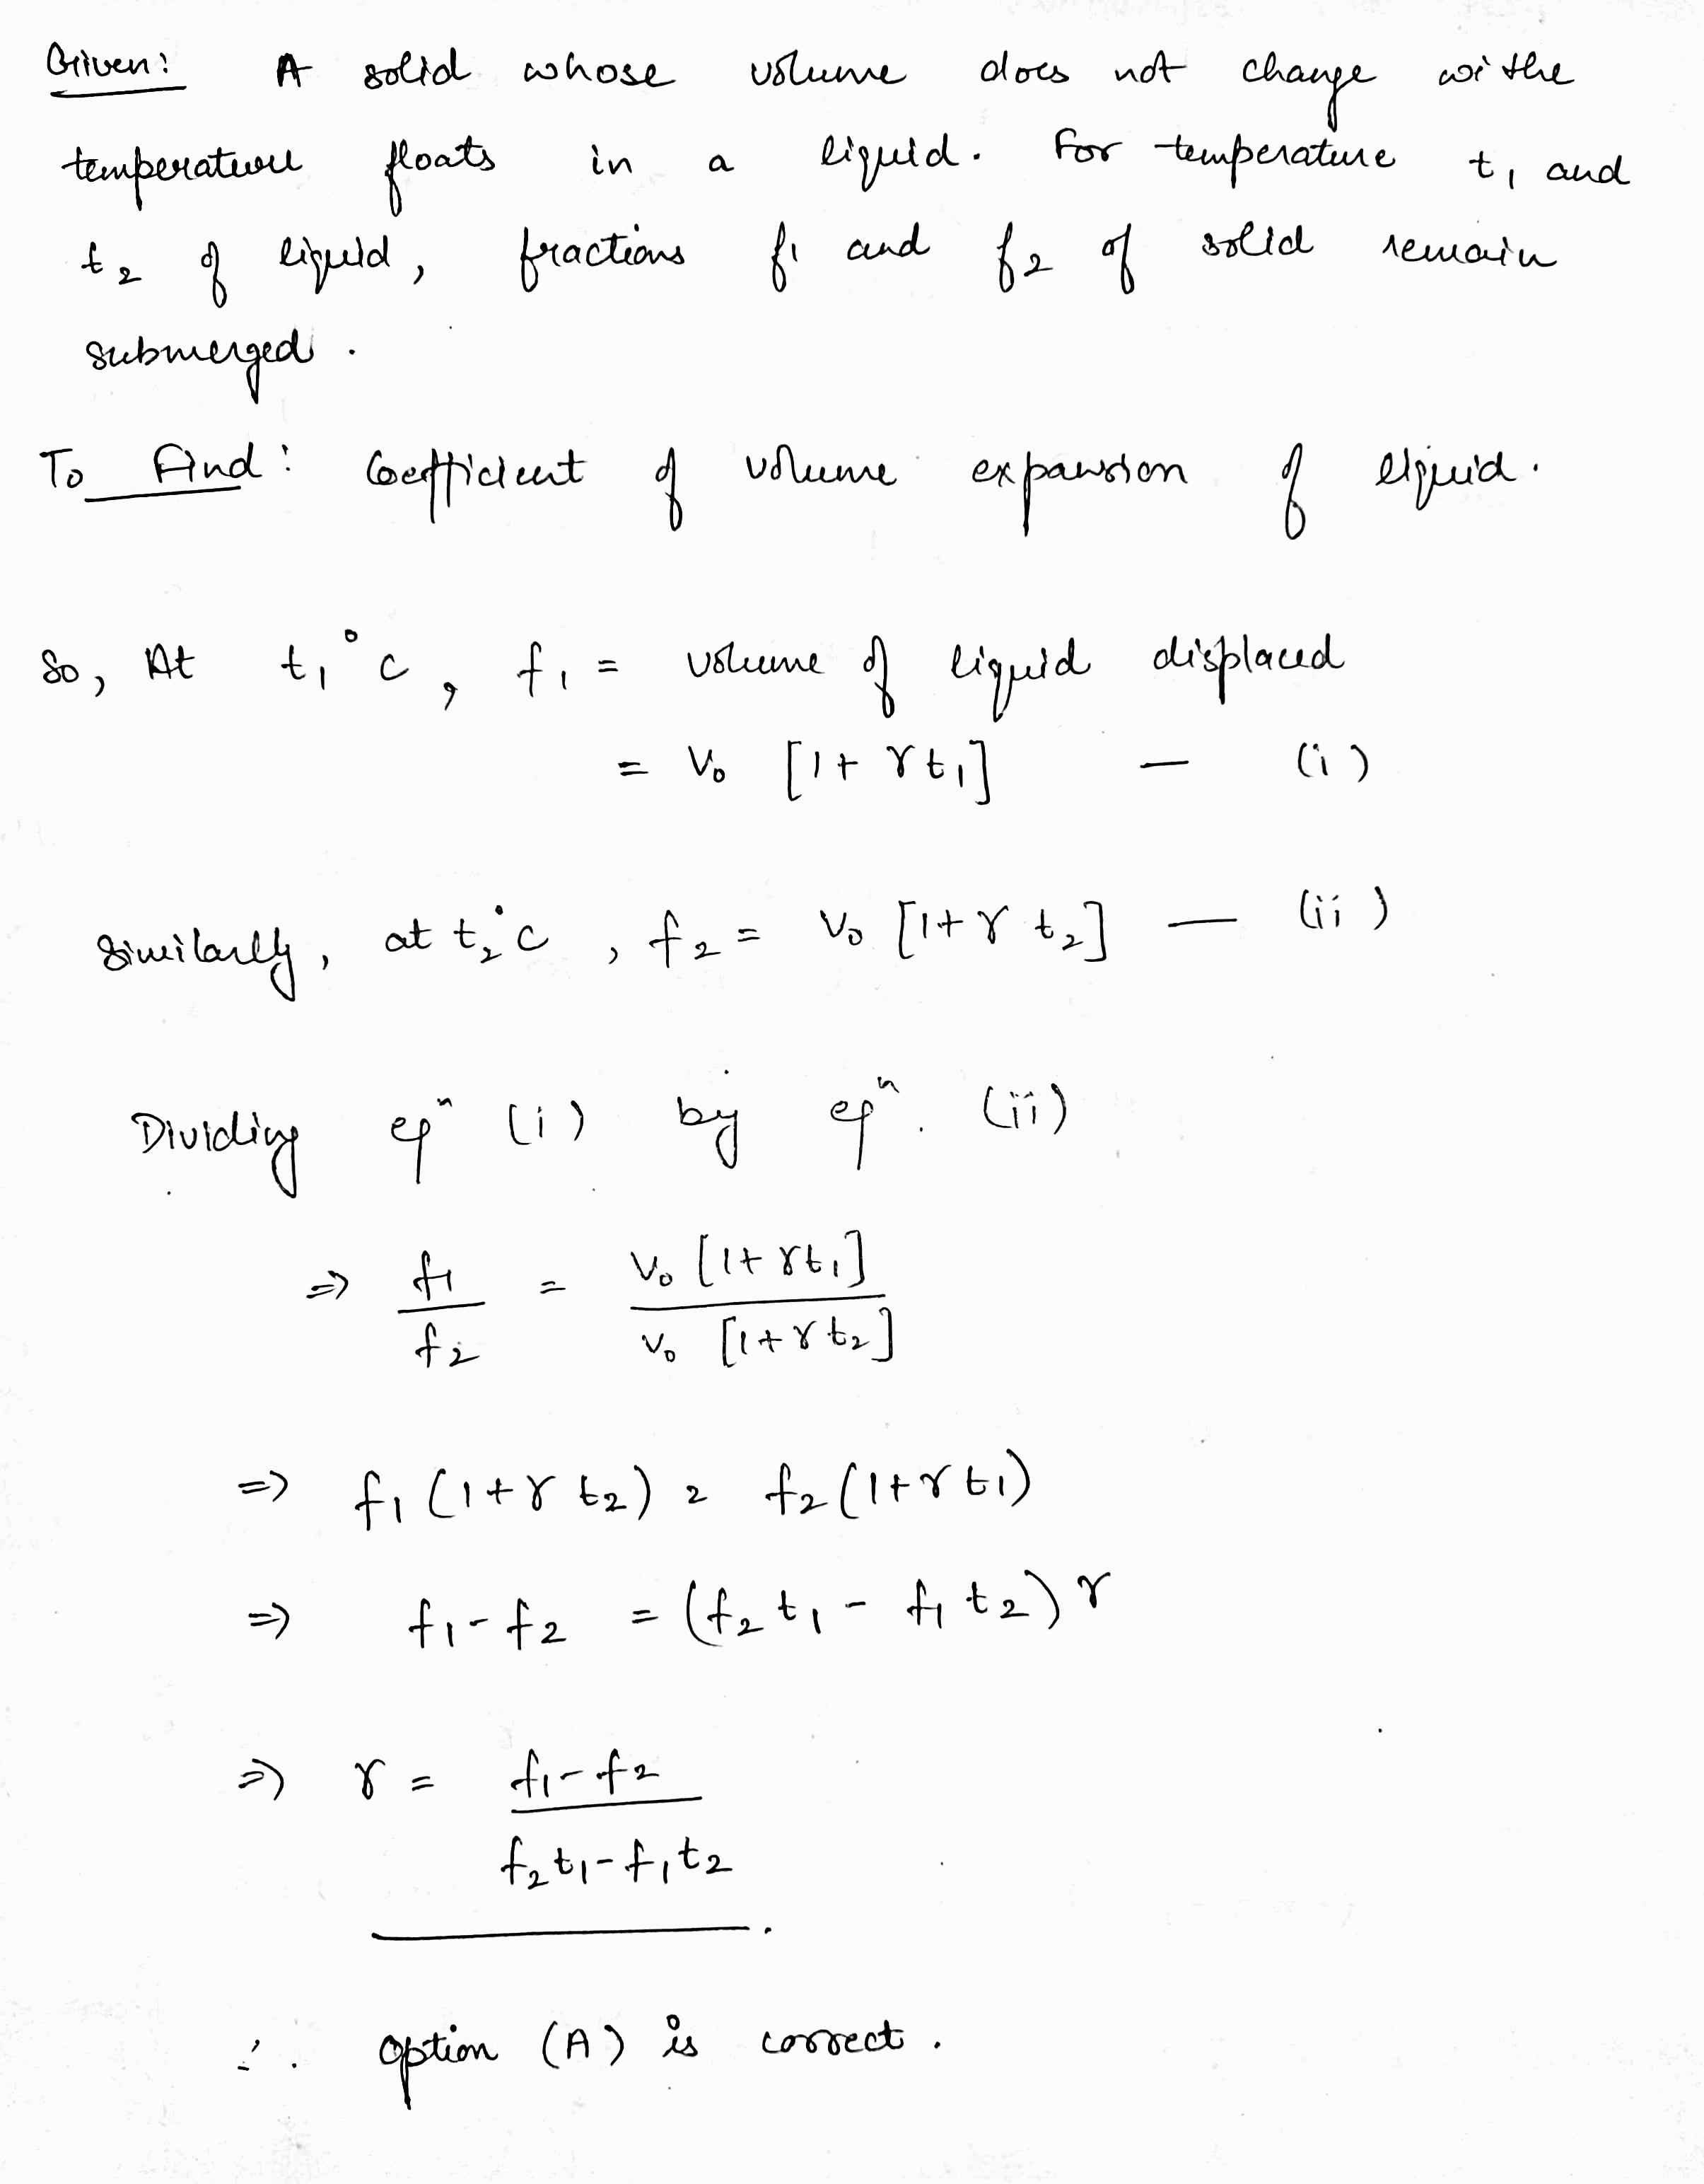 Given: A solid whose volume does not change withe
temperature floats in a liquid. For temperature t₁ and
t₂ of liquid, fractions f₁ and f₂ of solid remain
submerged.
To Find: Coefficient of volume expansion of liquid.
So, At t₁°c, f₁ = volume of liquid displaced
= V₀ [1+ γt₁] — (i)
Similarly, at t₂°c, f₂ = V₀ [1+γ t₂] — (ii)
Dividing eqⁿ (i) by eqⁿ. (ii)
⇒ f₁/f₂ = V₀ [1+γt₁] / V₀ [1+γt₂]
⇒ f₁(1+γ t₂) = f₂(1+γt₁)
⇒ f₁-f₂ = (f₂t₁ - f₁t₂)γ
⇒ γ = f₁-f₂ / f₂t₁-f₁t₂.
∴ option (A) is correct.